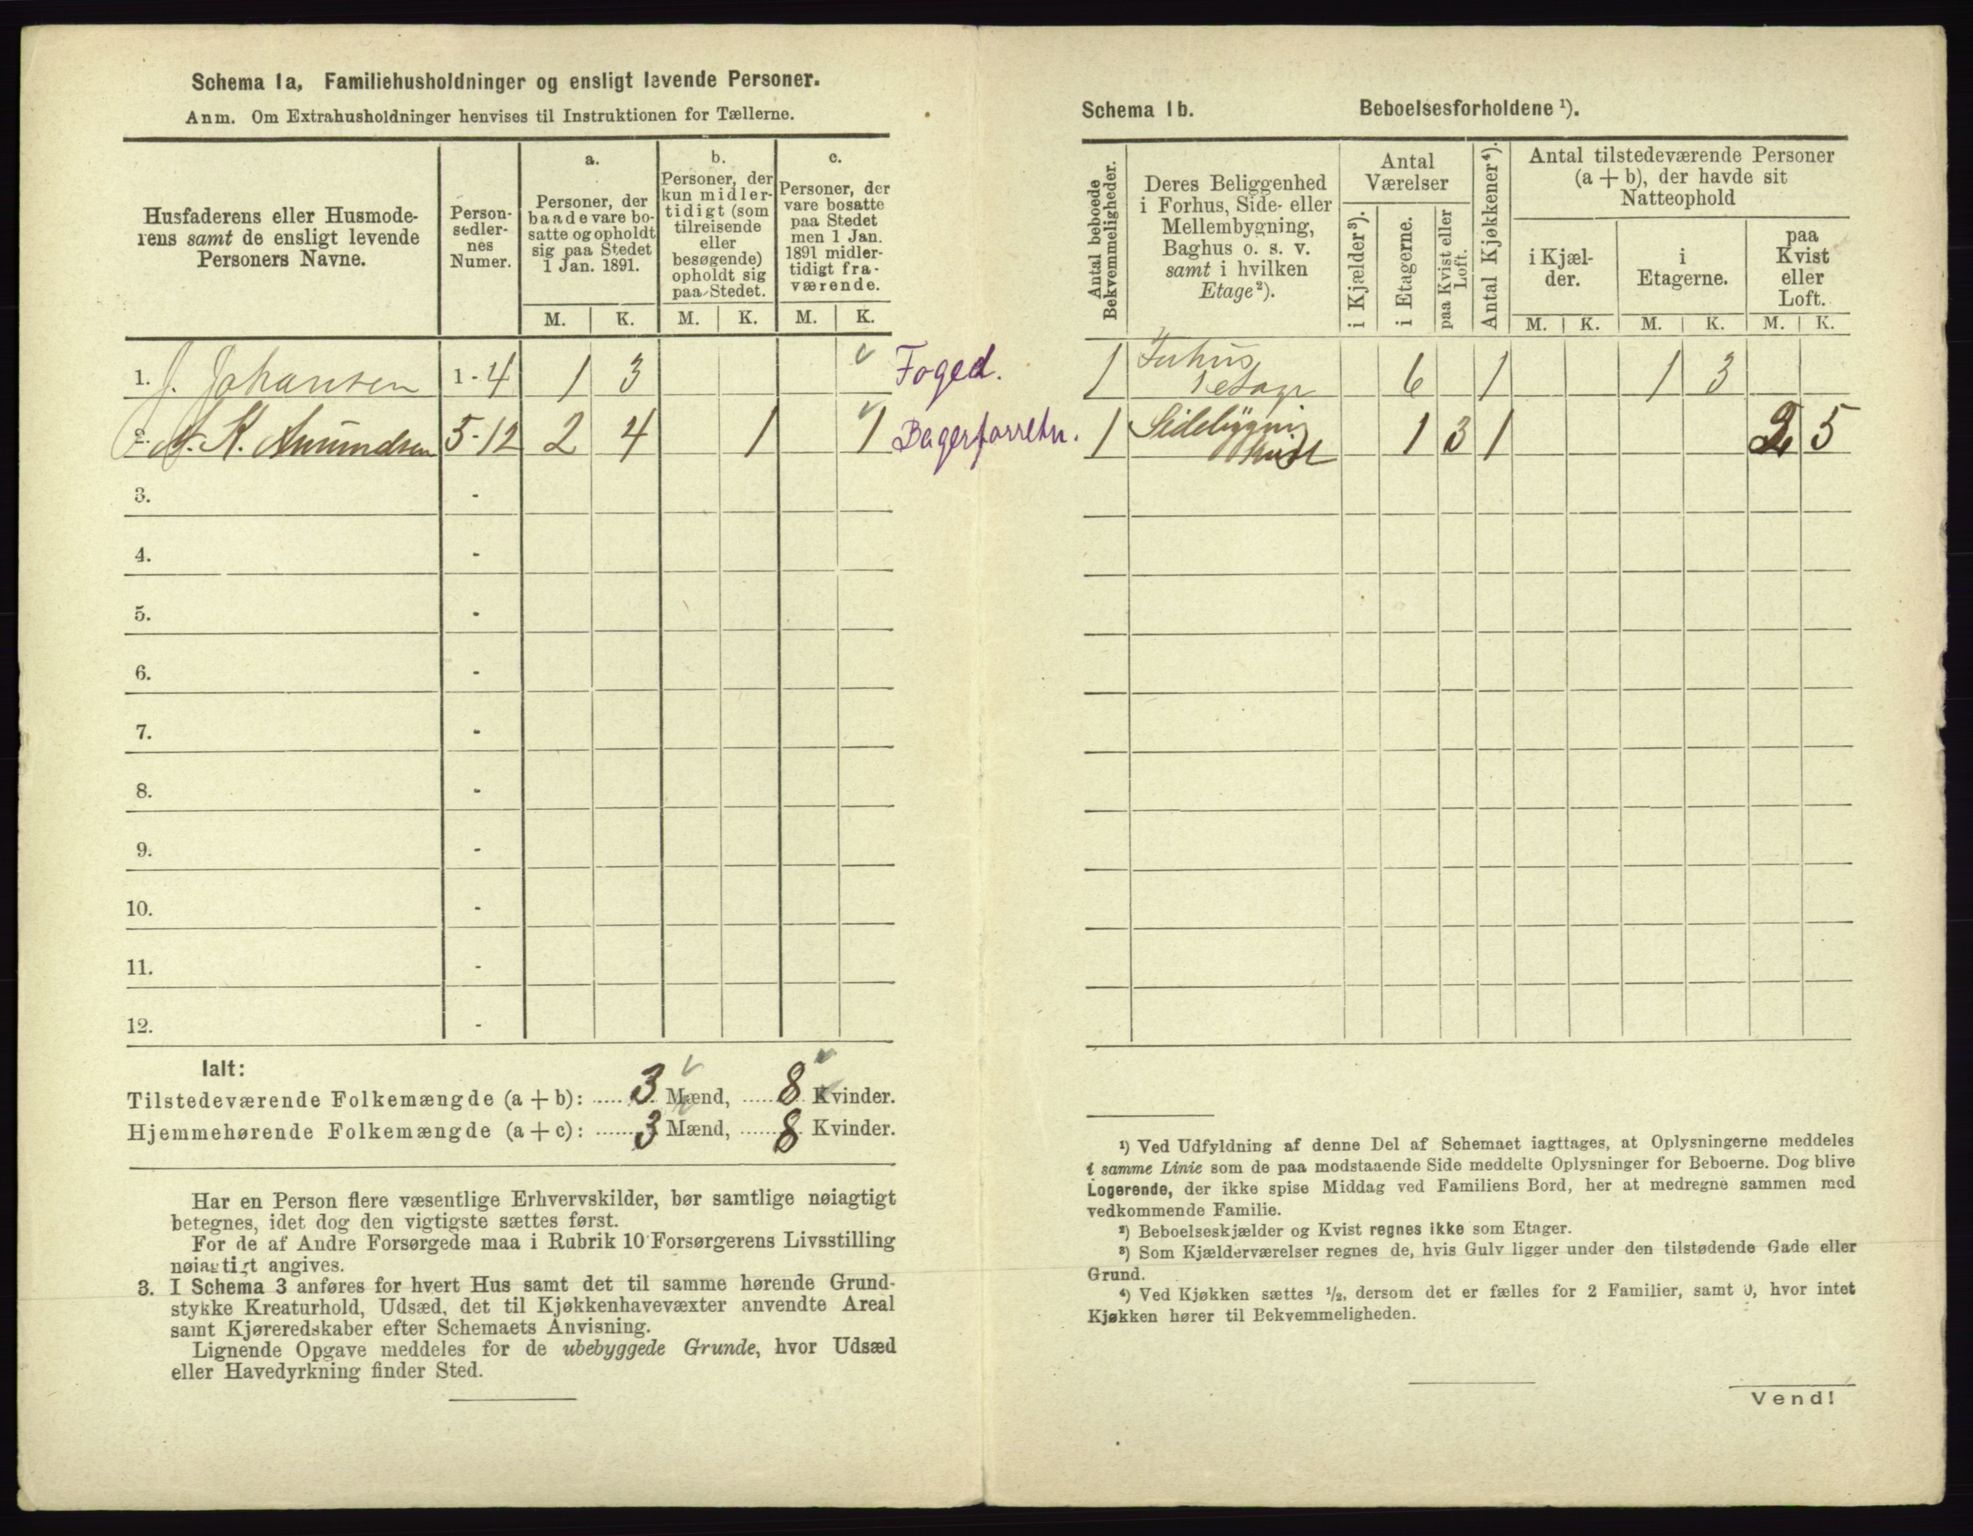 Schema 1a, Familiehusholdninger og ensligt levende Personer.
Anm. Om Extrahusholdninger henvises til Instruktionen for Tællerne.
Husfaderens eller Husmode-
rens samt de ensligt levende
Personers Navne.
Person-
sedler-
nes
Numer.
a.
Personer, der
baade vare bo-
satte og opholdt
sig paa Stedet
1 Jan. 1891.
b.
Personer, der
kun midler-
tidigt (som
tilreisende
eller
besøgende)
opholdt sig
paa Stedet.
c.
Personer, der
vare bosatte
paa Stedet
men 1 Jan.
1891 midler-
tidigt fra-
værende.
M. K. M. K. M. K.
1. J. Johansen 1-4 1 3 Foged.
2. K. Amundsen 5-12 2 4 1 1 Bagerforretn.
3. -
4. -
5. -
6. -
7. -
8. -
9. -
10. -
11. -
12. -
Ialt:
Tilstedeværende Folkemængde (a + b): 3 Mænd, 8 Kvinder.
Hjemmehørende Folkemængde (a + c): 3 Mænd, 8 Kvinder.
Har en Person flere væsentlige Erhvervskilder, bør samtlige nøiagtigt
betegnes, idet dog den vigtigste sættes først.
For de af Andre Forsørgede maa i Rubrik 10 Forsørgerens Livsstilling
nøiagtigt angives.
3. I Schema 3 anføres for hvert Hus samt det til samme hørende Grund-
stykke Kreaturhold, Udsæd, det til Kjøkkenhavevæxter anvendte Areal
samt Kjøreredskaber efter Schemaets Anvisning.
Lignende Opgave meddeles for de ubebyggede Grunde, hvor Udsæd
eller Havedyrkning finder Sted.
Schema 1b. Beboelsesforholdene ¹).
Antal beboede
Bekvemmeligheder.
Deres Beliggenhed
i Forhus, Side- eller
Mellembygning,
Baghus o. s. v.
samt i hvilken
Etage²).
Antal
Værelser
i Kjælder³).
i Etagerne.
paa Kvist eller
Loft.
Antal Kjøkkener⁴).
Antal tilstedeværende Personer
(a + b), der havde sit
Natteophold
i Kjæl-
der.
i
Etagerne.
paa
Kvist
eller
Loft.
M. K. M. K. M. K.
1 Forhus
1 etage 6 1 1 3
1 Sidebygning
Kvist 1 3 1 2 5
¹) Ved Udfyldning af denne Del af Schemaet iagttages, at Oplysningerne meddeles
i samme Linie som de paa modstaaende Side meddelte Oplysninger for Beboerne. Dog blive
Logerende, der ikke spise Middag ved Familiens Bord, her at medregne sammen med
vedkommende Familie.
²) Beboelseskjælder og Kvist regnes ikke som Etager.
³) Som Kjælderværelser regnes de, hvis Gulv ligger under den tilstødende Gade eller
Grund.
⁴) Ved Kjøkken sættes ½, dersom det er fælles for 2 Familier, samt 0, hvor intet
Kjøkken hører til Bekvemmeligheden.
Vend!